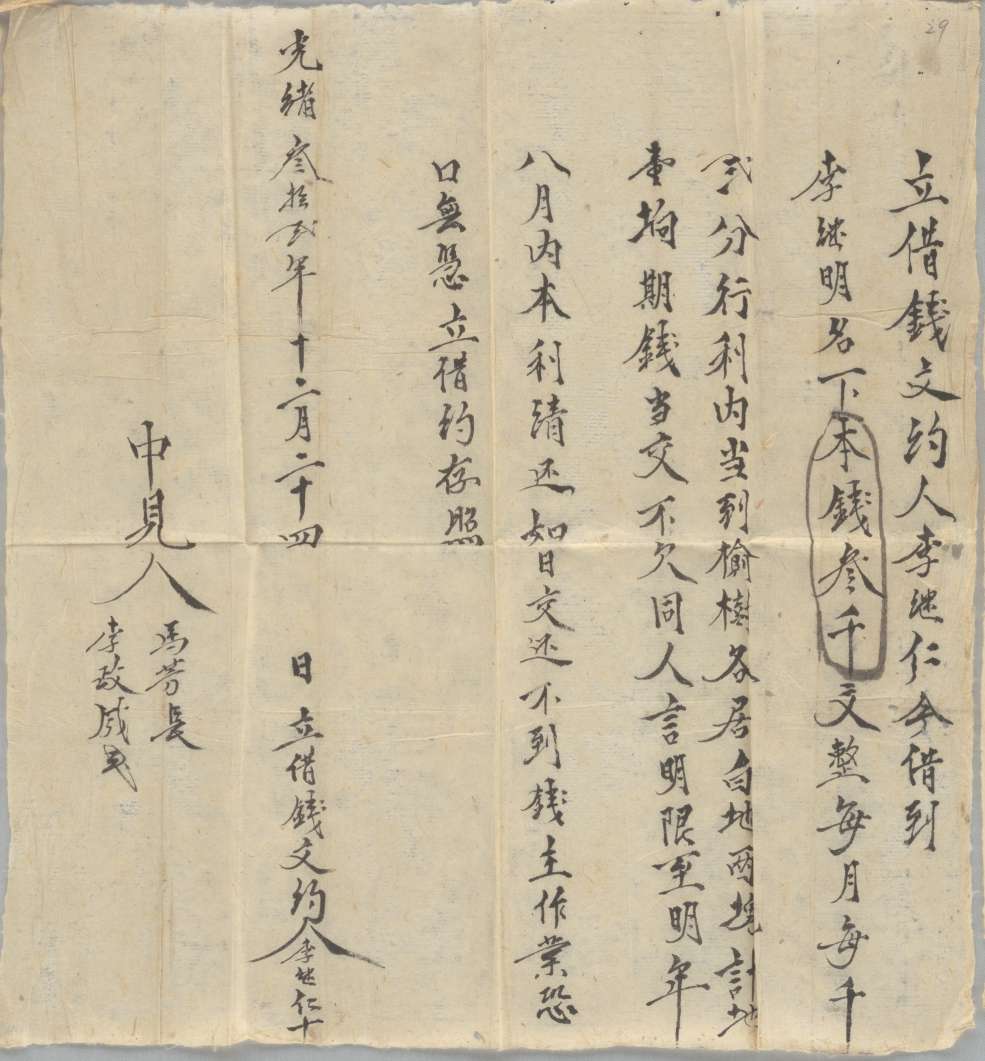 29
立借錢文約人李継仁今借到
李継明名下本錢叁千文整每月每千
弍分行利内当到榆樹各居白地两塊計地
壹垧期錢当交不欠同人言明限至明年
八月内本利清还如日交还不到錢主作業恐
口無憑立借約存照
光緒叁拾弍年十二月二十四日立借錢文約人李継仁十
中見人
馬芳長
李政